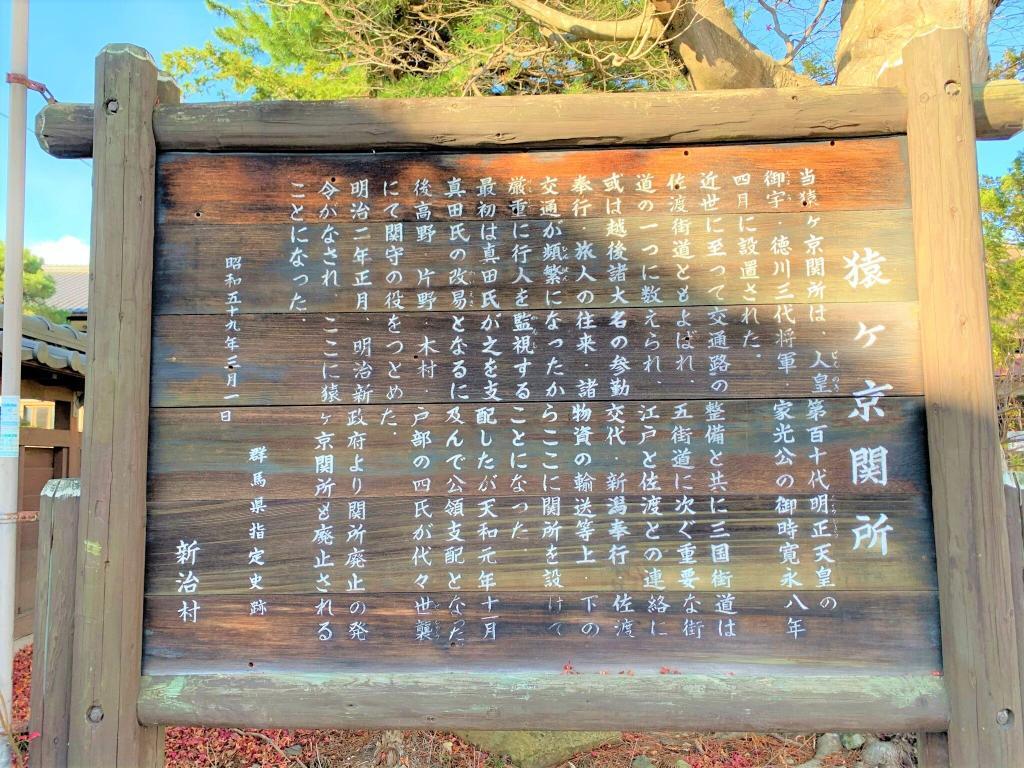 猿ヶ京関所
当猿ヶ京関所は 人皇第百十代明正天皇の
御宇・徳川三代将軍・家光公の御時寛永八年
四月に設置された．
近世に至って交通路の整備と共に三国街道は
佐渡街道ともよばれ、五街道に次ぐ重要な街
道の一つに数えられ、江戸と佐渡との連絡に
或は越後諸大名の参勤交代・新潟奉行・佐渡
奉行・旅人の往来・諸物資の輸送等上．下の
交通が頻繁になったからここに関所を設けて
厳重に行人を監視することになった．
最初は真田氏が之を支配したが天和元年十一月
真田氏の改易となるに及んで公領支配となった
後高野．片野．木村．戸部の四氏が代々世襲
にて関守の役をつとめた．
明治二年正月、明治新政府より関所廃止の発
令がなされ、ここに猿ヶ京関所も廃止される
ことになった．
群馬県指定史跡
昭和五十九年三月一日
新治村